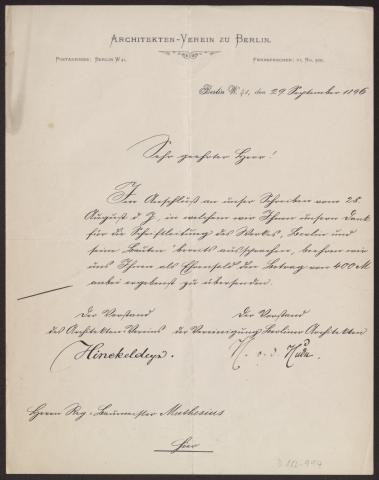 ARCHITEKTEN-VEREIN ZU BERLIN.
POSTADRESSE: BERLIN W 41. FERNSPRECHER: VI, No.
Berlin W. 41, den 29 September 1896
Sehr geehrter Herr!
Im Anschluß an unser Schreiben vom 28.
August d. J., in welchem wir Ihnen unsern Dank
für die Schriftleitung des Werkes, Berlin und
seine Bauten bereits aussprachen, beehren wir
uns Ihnen als Ehrensold den Betrag von 400 M
anbei ergebenst zu übersenden.
Der Vorstand Der Vorstand
des Architekten Vereins der Vereinigung Berliner Architekten
Hinckeldeyn. v. d. Hude.
Herrn Reg.-Baumeister Muthesius
Hier